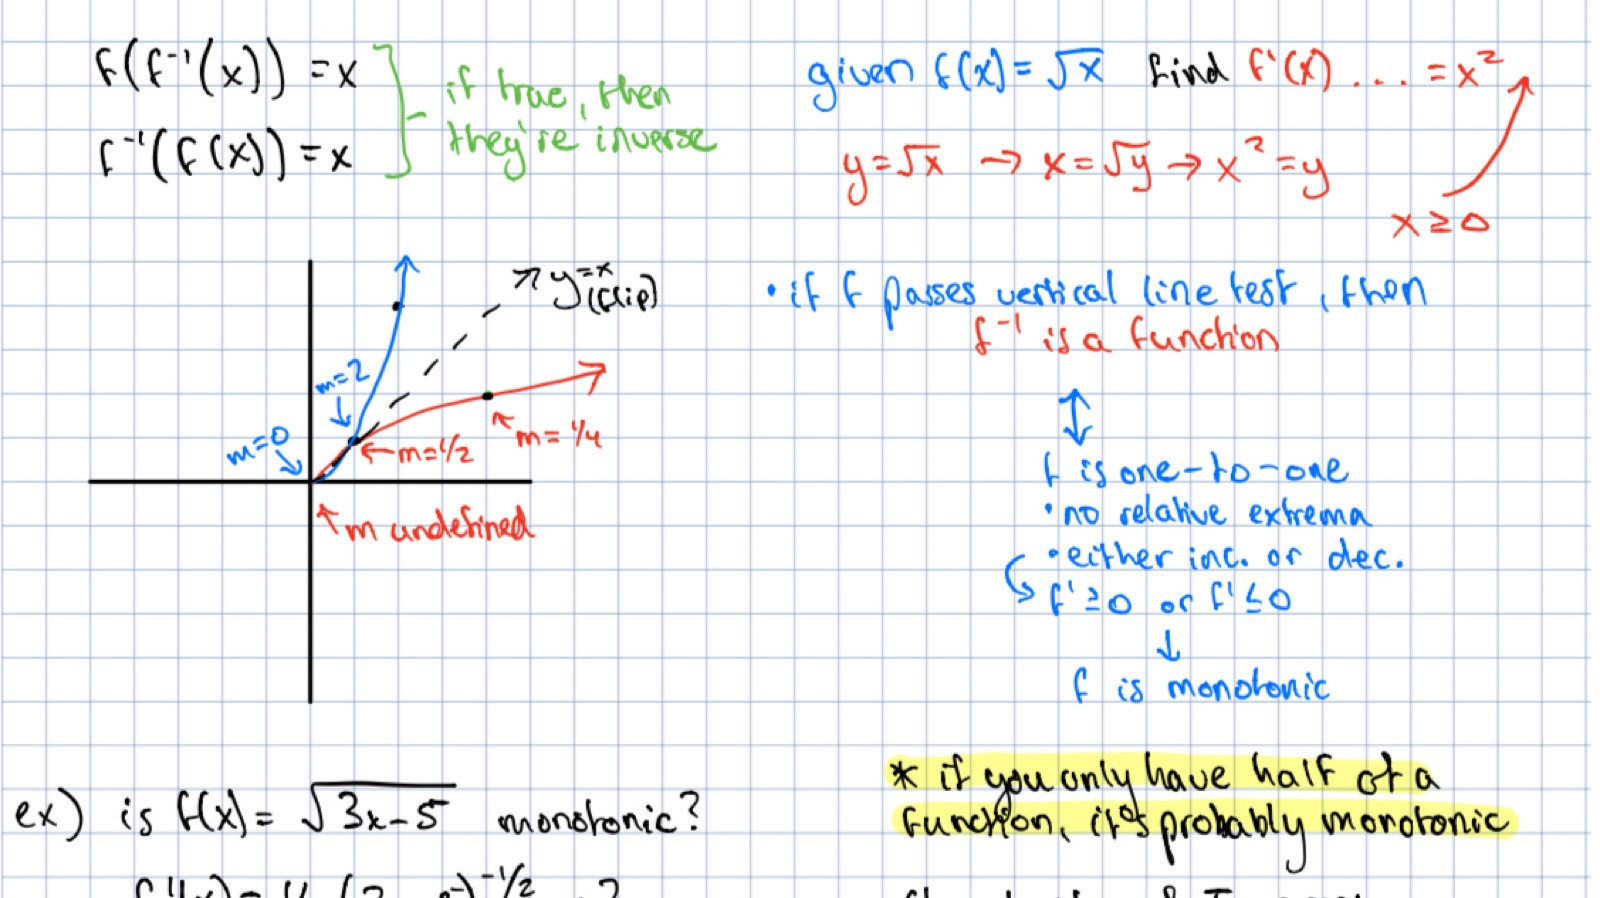 f(f⁻¹(x)) = x
f⁻¹(f(x)) = x
if true, then
they're inverse
given f(x) = √x find f⁻¹(x) ... = x²
y = √x → x = √y → x² = y
x ≥ 0
y=x
(flip)
m=2
m=0
m=1/2
m=1/4
m undefined
• if f passes vertical line test, then
f⁻¹ is a function
↕
f is one-to-one
• no relative extrema
• either inc. or dec.
f' ≥ 0 or f' ≤ 0
↓
f is monotonic
* if you only have half of a
function, it's probably monotonic
ex) is f(x) = √3x-5 monotonic?